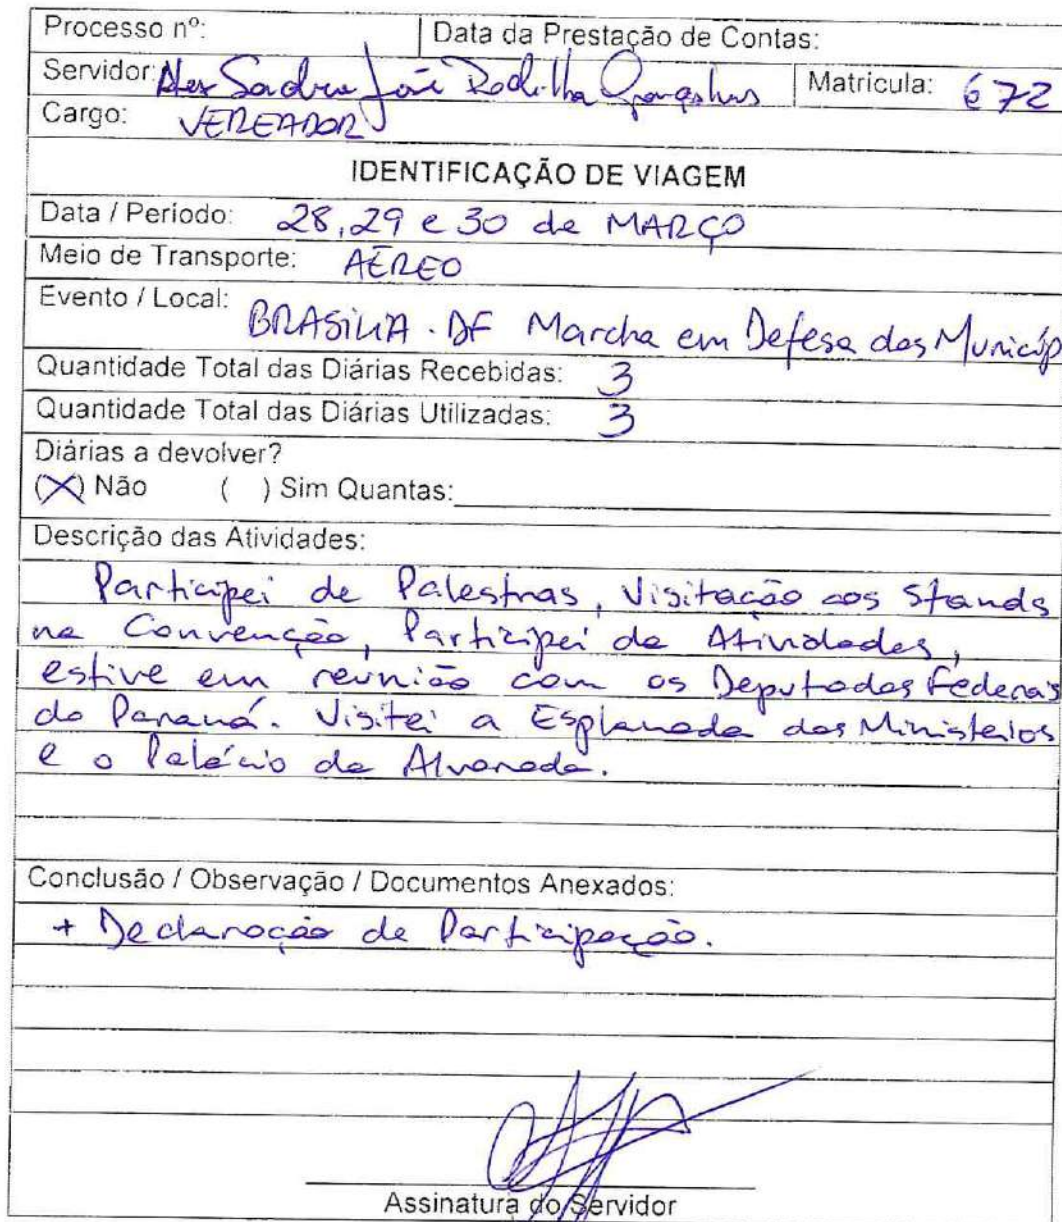 Processo nº: Data da Prestação de Contas:
Servidor: Alex Sandro José Rodrilha Gonçalves Matrícula: 672
Cargo: VEREADOR
IDENTIFICAÇÃO DE VIAGEM
Data / Período: 28, 29 e 30 de MARÇO
Meio de Transporte: AÉREO
Evento / Local: BRASÍLIA - DF Marcha em Defesa dos Municíp
Quantidade Total das Diárias Recebidas: 3
Quantidade Total das Diárias Utilizadas: 3
Diárias a devolver?
(X) Não ( ) Sim Quantas:
Descrição das Atividades:
Participei de Palestras, Visitação aos Stands
na Convenção, Participei de Atividades,
estive em reunião com os Deputados Federais
do Paraná. Visitei a Esplanada dos Ministerios
e o Palácio da Alvorada.
Conclusão / Observação / Documentos Anexados:
+ Declaração de Participação.
Assinatura do Servidor